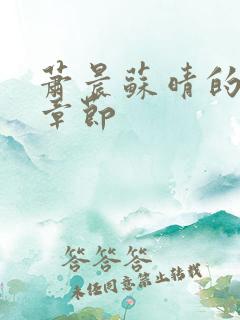 萧晨蘇晴的
章節
答答答
未经同意禁止转载